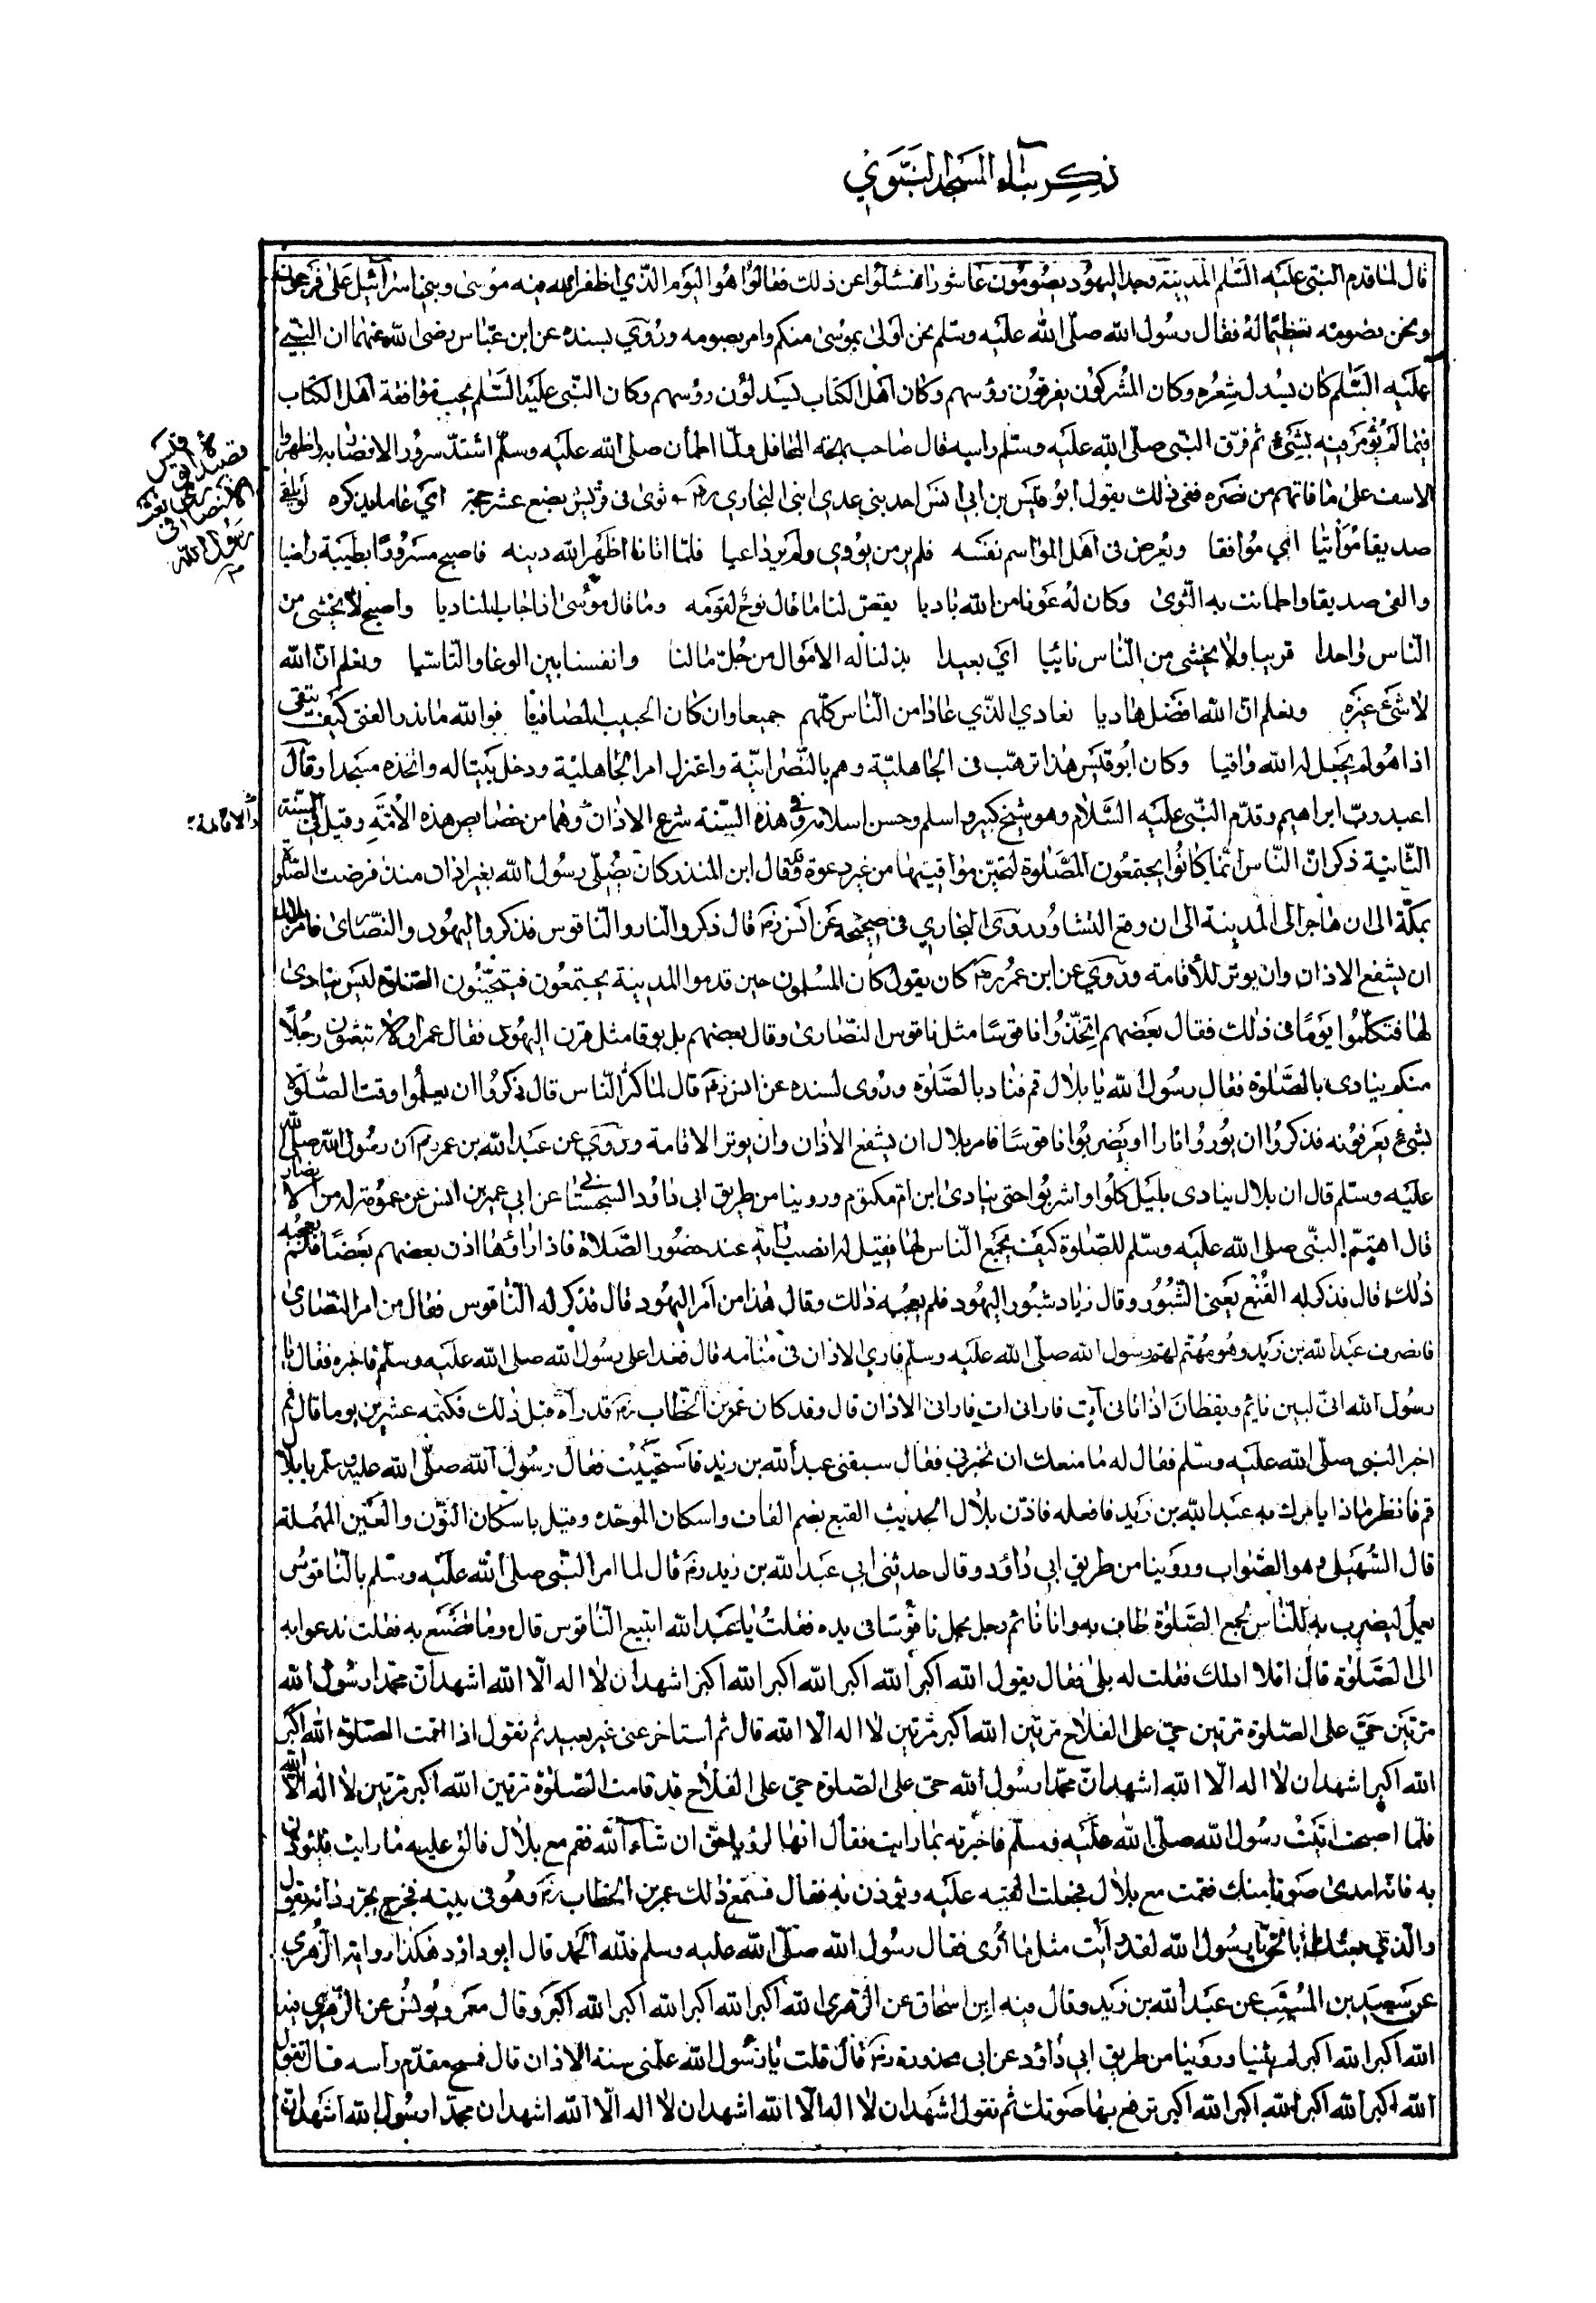 ذكر بناء المسجد النبوي
قال لما قدم النبي عليه السلم المدينة وجد اليهود يصومون عاشورا فسئلوا عن ذلك فقالوا هو اليوم الذي اظفر الله فيه موسى وبني اسرائيل على فرعون
ونحن نصومه تعظيما له فقال رسول الله صلى الله عليه وسلم نحن اولى بموسى منكم وامر بصومه وروي بسنده عن ابن عباس رضى الله عنهما ان النبي
عليه السلم كان يسدل شعره وكان المشركون يفرقون رؤسهم وكان اهل الكتاب يسدلون رؤسهم وكان النبي عليه السلم يحب موافقة اهل الكتاب
فيما لم يؤمر فيه بشئ ثم فرق النبي صلى الله عليه وسلم راسه قال صاحب بهجة المحافل ولما اطمأن صلى الله عليه وسلم اشتد سرور الانصار به واظهروا
الاسف على ما فاتهم من نصره ففي ذلك يقول ابو قيس بن ابي انس احد بني عدي ابني النجاري رضه ثوى في قريش بضع عشر حجة اي عاما يذكره لو يلقى
قصيدة ابو قيس
الانصاري في بعثة
رسول الله
صديقا مؤاتيا اي موافقا ويعرض في اهل المواسم نفسه فلم ير من يؤوي ولم ير داعيا فلما اتانا اظهر الله دينه فاصبح مسرورا بطيبة راضيا
والفى صديقا واطمانت به النوى وكان له عونا من الله باديا يقص لنا ما قال نوح لقومه وما قال موسى اذ اجاب المناديا واصبح لا يخشى من
الناس واحدا قريبا ولا يخشى من الناس نائيا اي بعيدا بذلنا له الاموال من جل مالنا وانفسنا بين الوغا والتاسيا ونعلم ان الله
لا شئ غيره ونعلم ان الله افضل هاديا نعادي الذي عادا من الناس كلهم جميعا وان كان الحبيب المصافيا فوالله ما يدر الفتى كيف يتقى
اذا هو لم يجعل له الله واقيا وكان ابو قيس هذا ترهب في الجاهلية وهم بالنصرانية واعتزل امر الجاهلية ودخل بيتا له واتخذه مسجدا وقال
اعبد رب ابراهيم وقدم النبي عليه السلام وهو شيخ كبير واسلم وحسن اسلامه وفي هذه السنة شرع الاذان وهما من خصايص هذه الامة وقيل في السنة
والاقامة
الثانية ذكر ان الناس انما كانوا يجتمعون الصلوة لتحين مواقيتها من غير دعوة وقال ابن المنذر كان يصلى رسول الله بغير اذان منذ فرضت الصلوة
بمكة الى ان هاجر الى المدينة الى ان وقع التشاور وروى البخاري في صحيحه عن انس رضه قال ذكروا النار والناقوس فذكروا اليهود والنصارى فامر بلال
ان يشفع الاذان وان يوتر للأقامة وروي عن ابن عمر رضه كان يقول كان المسلمون حين قدموا المدينة يجتمعون فيتحينون الصلوة ليس ينادى
لها فتكلموا يوما في ذلك فقال بعضهم اتخذوا ناقوسا مثل ناقوس النصارى وقال بعضهم بل بوقا مثل قرن اليهود فقال عمر اولا تبعثون رجلا
منكم ينادى بالصلوة فقال رسول الله يا بلال قم فناد بالصلوة وروى لسنده عن انس رضه قال لما كثر الناس قال ذكروا ان يعلموا وقت الصلوة
بشئ يعرفونه فذكروا ان يوروا نارا او يضربوا ناقوسا فامر بلال ان يشفع الاذان وان يوتر الاقامة وروي عن عبد الله بن عمر رضه ان رسول الله صلى الله
عليه وسلم قال ان بلال ينادى بليل كلوا واشربوا حتى ينادى ابن ام مكتوم وروينا من طريق ابي داود السجستاني عن ابي عمير بن انس عن عمومة له من الانصار
قال اهتم النبي صلى الله عليه وسلم للصلوة كيف يجمع الناس لها فقيل له انصب راية عند حضور الصلاة فاذا راؤها اذن بعضهم بعضا فلم يعجبه
ذلك قال فذكر له القنع يعني الشبور وقال زياد شبور اليهود فلم يعجبه ذلك وقال هذا من امر اليهود قال فذكر له الناقوس فقال من امر النصارى
فانصرف عبد الله بن زيد وهو مهتم لهم رسول الله صلى الله عليه وسلم فاري الاذان في منامه قال فغدا على رسول الله صلى الله عليه وسلم فاخبره فقال يا
رسول الله اني لبين نايم ويقظان اذ اتاني آت فاراني ات فاراني الاذان قال وقد كان عمر بن الخطاب رضه قد رآه قبل ذلك فكتمه عشرين يوما قال ثم
اخبر النبي صلى الله عليه وسلم فقال له ما منعك ان تخبرني فقال سبقنى عبد الله بن زيد فاستحييت فقال رسول الله صلى الله عليه وسلم يا بلال
قم فانظر ماذا يامرك به عبد الله بن زيد فافعله فاذن بلال الحديث القبع بضم القاف واسكان الموحده وقيل باسكان النون والعين المهملة
قال السهيلى وهو الصواب وروينا من طريق ابي داود وقال حدثنى ابي عبد الله بن زيد رضه قال لما امر النبي صلى الله عليه وسلم بالناقوس
يعمل ليضرب به للناس لجمع الصلوة طاف به وانا نائم رجل يحمل ناقوسا في يده فقلت يا عبد الله اتبيع الناقوس قال وما تصنع به فقلت ندعوا به
الى الصلوة قال افلا ادلك فقلت له بلى فقال يقول الله اكبر الله اكبر الله اكبر الله اكبر اشهد ان لا اله الا الله اشهد ان محمدا رسول الله
مرتين حي على الصلوة مرتين حي على الفلاح مرتين الله اكبر مرتين لا اله الا الله قال ثم استاخر عني غير بعيد ثم تقول اذا اقمت الصلوة الله اكبر
الله اكبر اشهد ان لا اله الا الله اشهد ان محمدا رسول الله حي على الصلوة حي على الفلاح قد قامت الصلوة مرتين الله اكبر مرتين لا اله الا الله
فلما اصبحت اتيت رسول الله صلى الله عليه وسلم فاخبرته بما رايت فقال انها لرؤيا حق ان شاء الله فقم مع بلال فالق عليه ما رايت فليؤذن
به فانه امدى صوتا منك فقمت مع بلال فجعلت القيه عليه ويؤذن به فقال فسمع ذلك عمر بن الخطاب رضه وهو في بيته فخرج يجر رداءه يقول
والذي بعثك بالحق يا رسول الله لقد رأيت مثل ما أرى فقال رسول الله صلى الله عليه وسلم فلله الحمد قال ابو داود هكذا رواية الزهري
عن سعيد بن المسيب عن عبد الله بن زيد وقال فيه ابن اسحاق عن الزهري الله اكبر الله اكبر الله اكبر الله اكبر وقال معمر ويونس عن الزهري فيه
الله اكبر الله اكبر لم يثنيا وروينا من طريق ابي داود عن ابي محذورة رضه قال قلت يا رسول الله علمني سنة الاذان قال فمسح مقدم راسه قال تقول
الله اكبر الله اكبر الله اكبر الله اكبر ترفع بها صوتك ثم تقول اشهد ان لا اله الا الله اشهد ان لا اله الا الله اشهد ان محمدا رسول الله اشهد ان